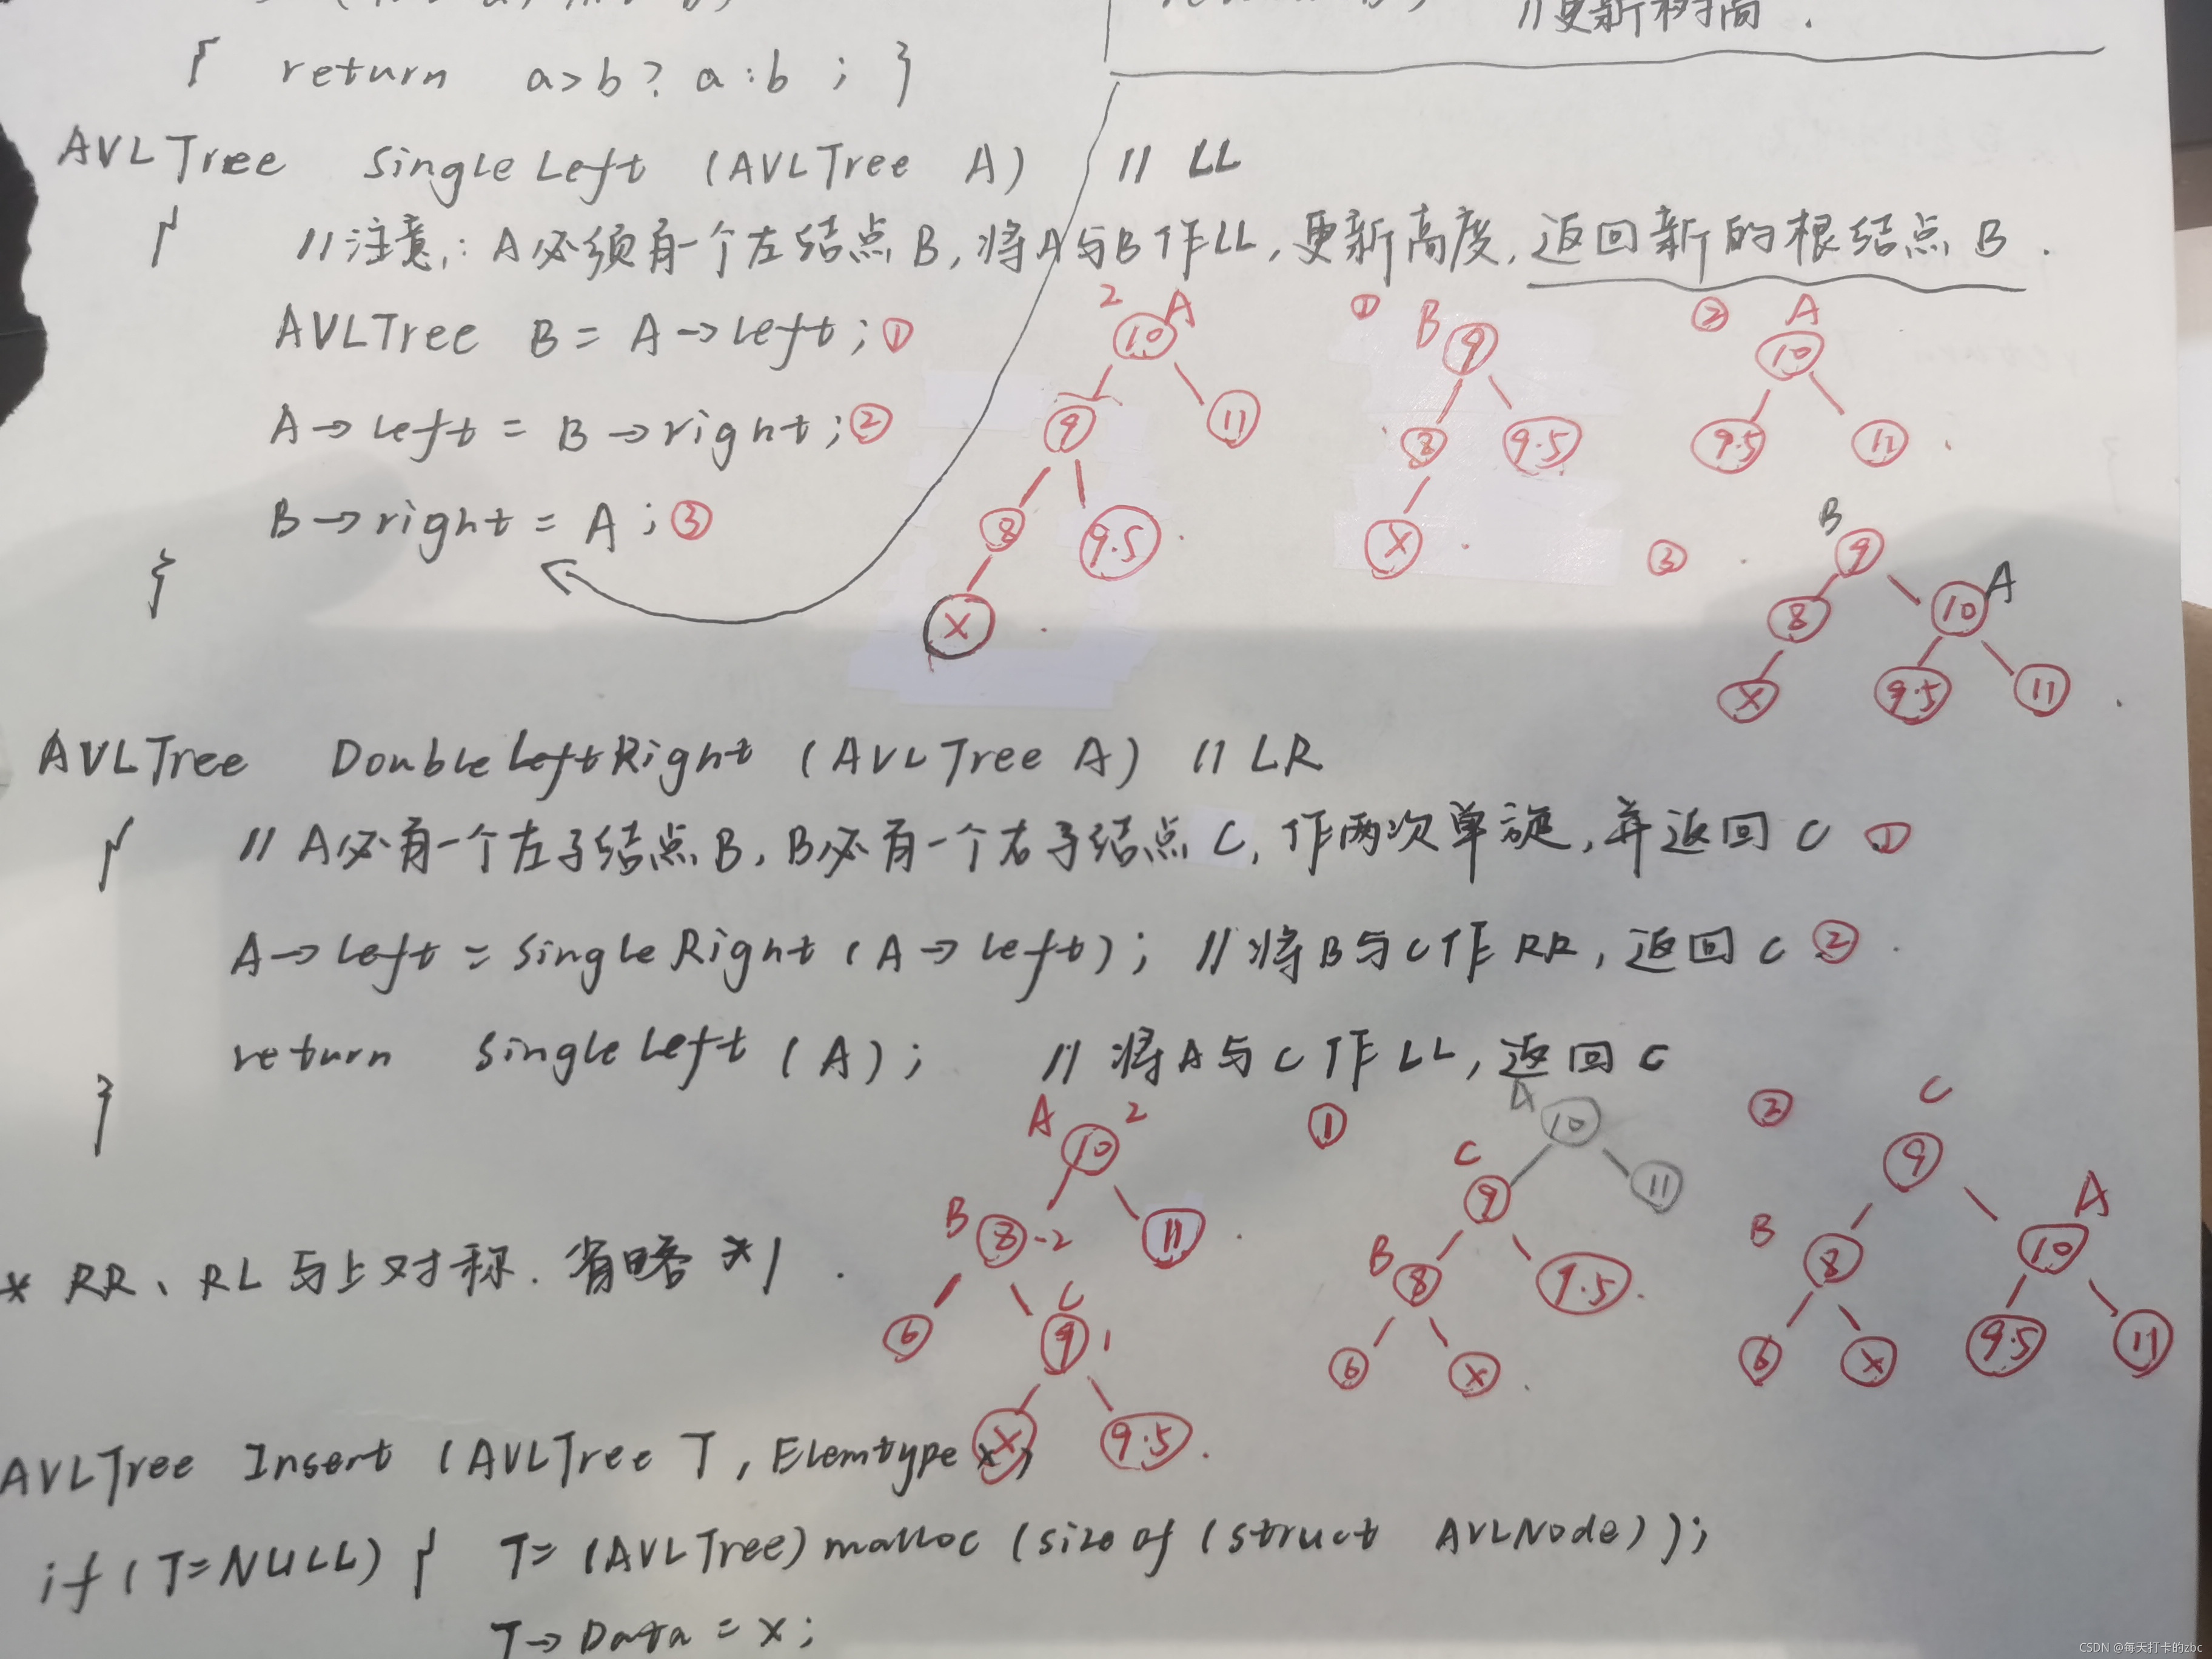 //更新树高.
{ return a>b? a:b; }
AVLTree SingleLeft (AVLTree A) // LL
{ //注意: A必须有一个左结点B, 将A与B作LL, 更新高度, 返回新的根结点B.
AVLTree B = A→left; ①
A→left = B→right; ②
B→right = A; ③
}
2 A
10
9 11
8 9.5
X
① B
9
8 9.5
X
② A
10
9.5 11
③ B
9 A
8 10
X 9.5 11
AVLTree DoubleLeftRight (AVLTree A) // LR
{ // A必有一个左子结点B, B必有一个右子结点C, 作两次单旋, 并返回C ①
A→left = SingleRight (A→left); //将B与C作RR, 返回C ②
return SingleLeft (A); // 将A与C作LL, 返回C
}
A 2
10
B 8 -2 11
6 C 9 1
X 9.5
① A
10
C 9 11
B 8 9.5
6 X
② C
9
B 8 A 10
6 X 9.5 11
* RR、RL与上对称. 省略 */
AVLTree Insert (AVLTree T, Elemtype x)
if (T=NULL) { T= (AVLTree) malloc (sizeof (struct AVLNode));
T→Data = x;
CSDN @每天打卡的zbc